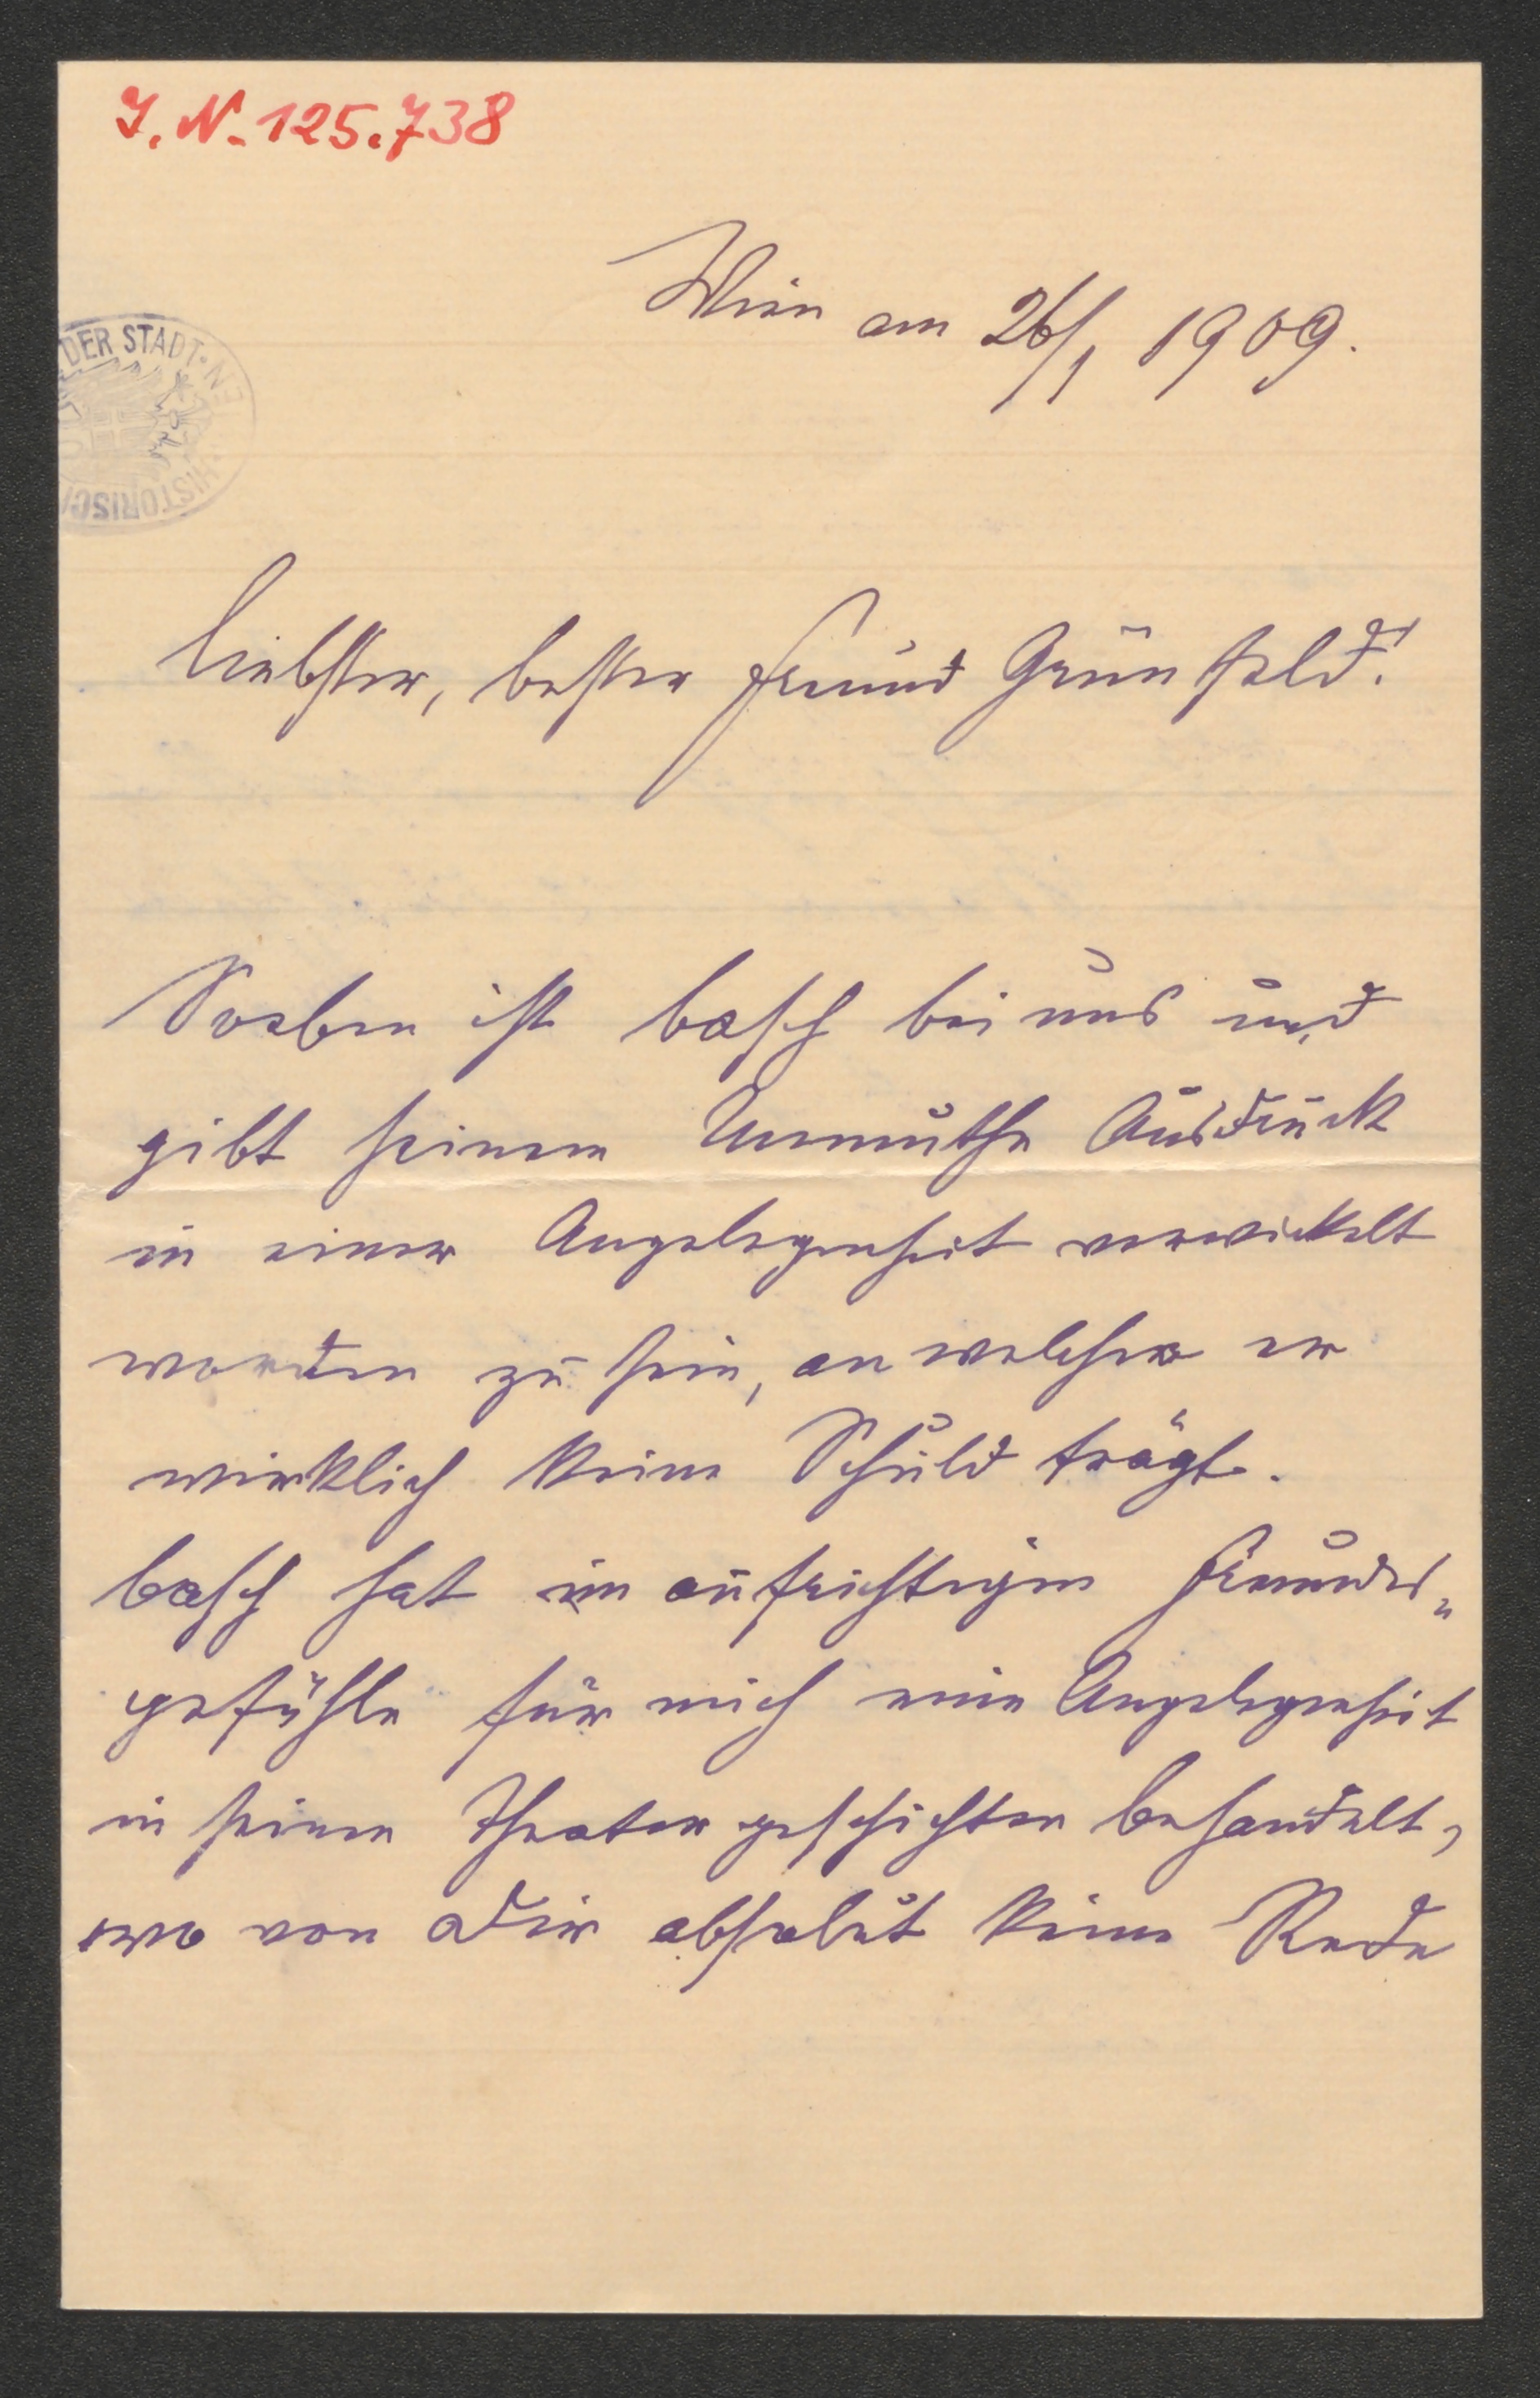 I. N. 125.738
Wien am 26/1 1909.
DER STADT
HISTORISCH
Liebster, bester Freund Grünfeld!
Soeben ist Basch bei uns und
gibt seinem Unmuthe Ausdruck
in einer Angelegenheit verwickelt
worden zu sein, an welcher er
wirklich keine Schuld trägt.
Basch hat im aufrichtigen Freundes„
gefühle für mich eine Angelegenheit
in seinen Theatergeschichten behandelt,
wo von Dir absolut keine Rede